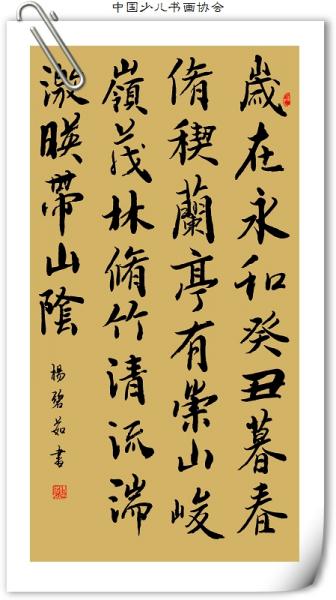 中国少儿书画协会
歲在永和癸丑暮春
脩稧蘭亭有崇山峻
嶺茂林脩竹清流湍
激暎帶山陰
楊碧茹書